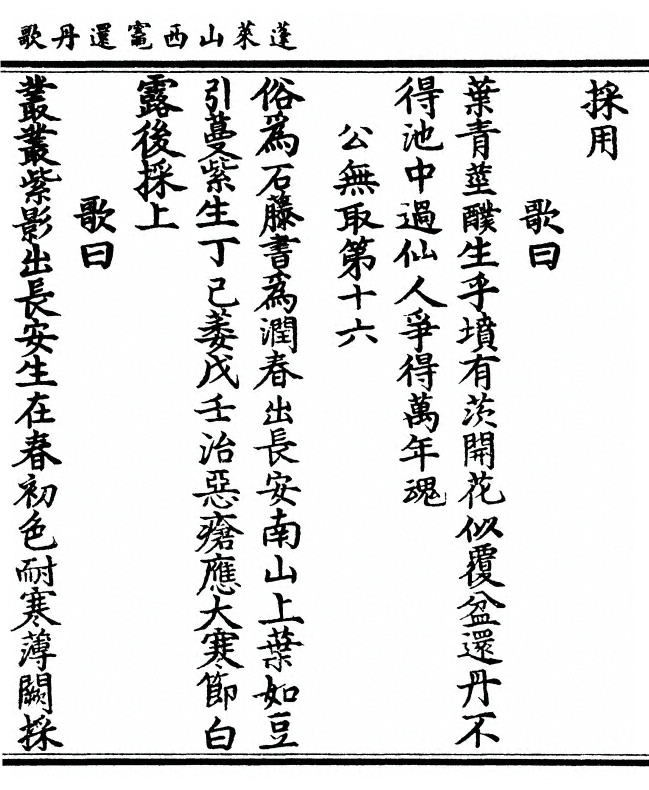 蓬萊山西竈還丹歌
採用
歌曰
葉青莖醭生乎墳有茨開花似覆盆還丹不
得池中過仙人爭得萬年魂
公無取第十六
俗爲石藤書爲潤春出長安南山上葉如豆
引蔓紫生丁己萎戊壬治惡瘡應大寒節白
露後採上
歌曰
叢叢紫影出長安生在春初色耐寒薄闕採